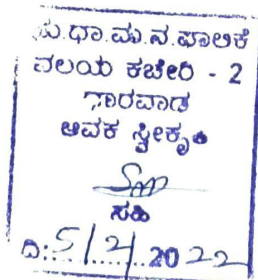 ಹು.ಧಾ.ಮ.ನ.ಪಾಲಿಕೆ
ವಲಯ ಕಚೇರಿ - 2
ಗಾರವಾಡ
ಆವಕ ಸ್ವೀಕೃತಿ
ಸಹಿ
ದಿ: 5/2/2022